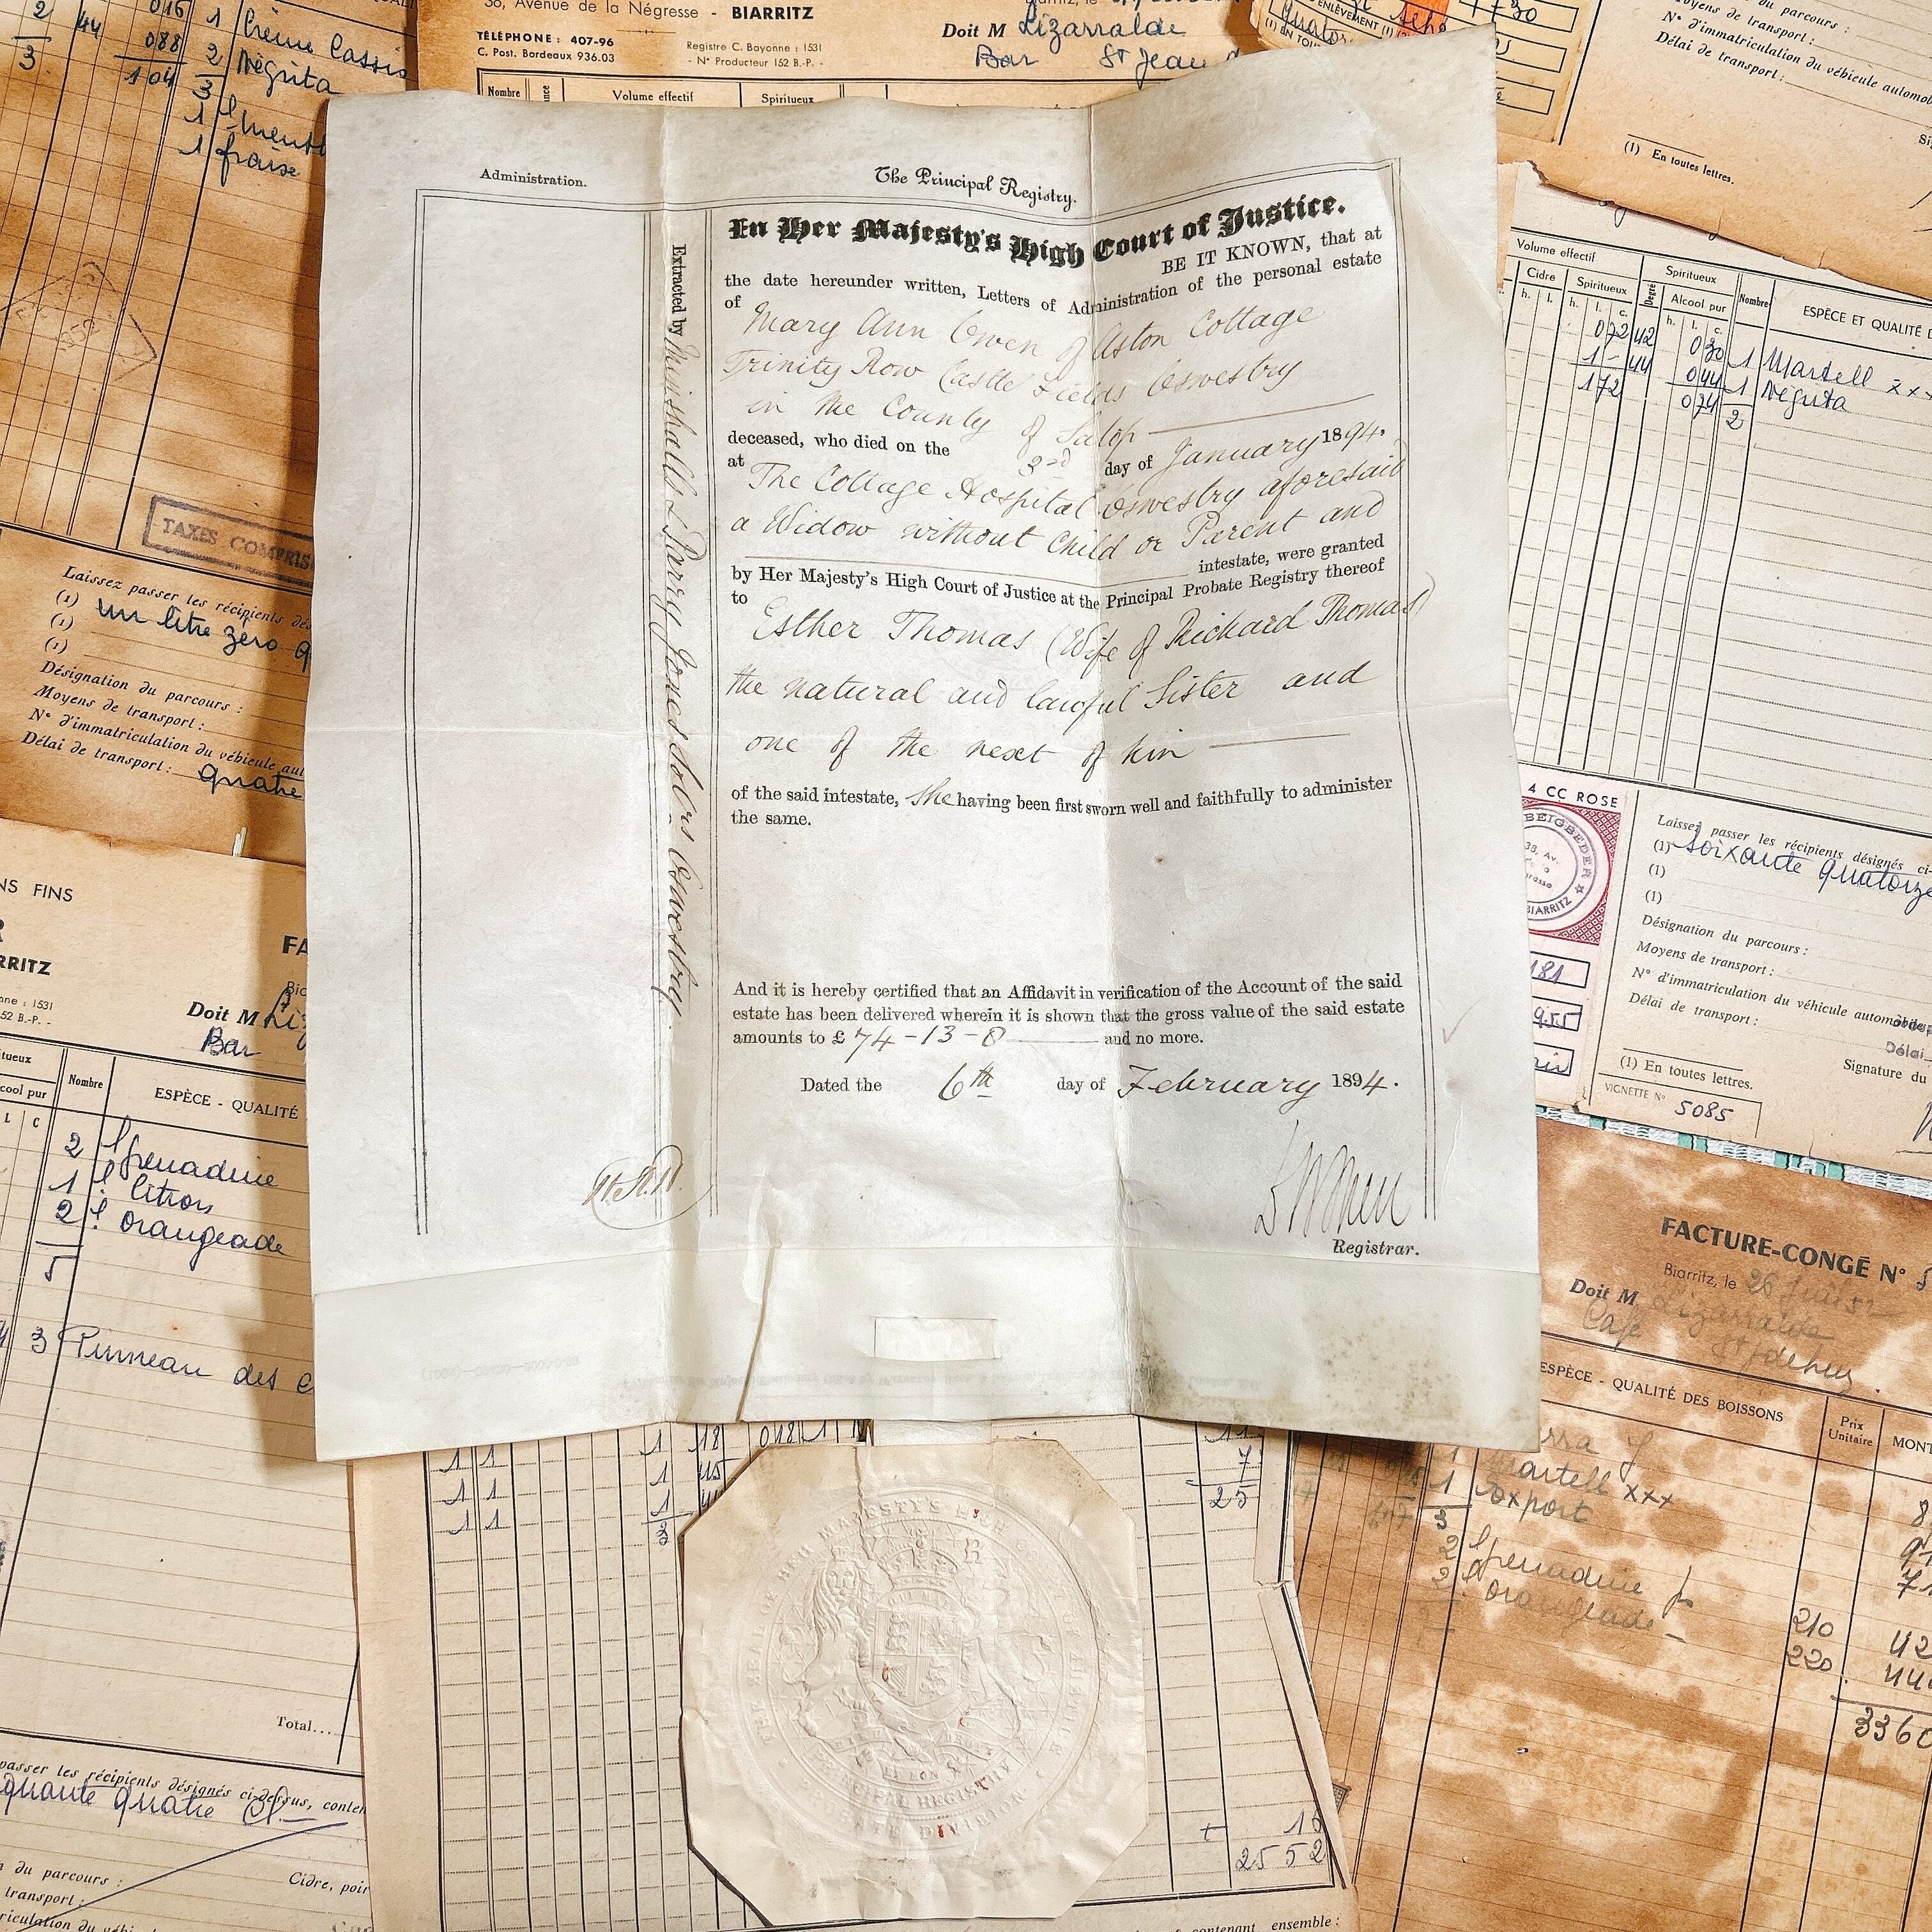 Administration.
The Principal Registry.
In Her Majesty's High Court of Justice.
BE IT KNOWN, that at
the date hereunder written, Letters of Administration of the personal estate
of
Mary Ann Owen of Aston Cottage
Trinity Row Castle Fields Oswestry
in the County of Salop
deceased, who died on the 3rd day of January 1894.
at The Cottage Hospital Oswestry aforesaid
a Widow without Child or Parent and
intestate, were granted
by Her Majesty's High Court of Justice at the Principal Probate Registry thereof
to
Esther Thomas (Wife of Richard Thomas)
the natural and lawful Sister and
one of the next of kin
of the said intestate, She having been first sworn well and faithfully to administer
the same.
And it is hereby certified that an Affidavit in verification of the Account of the said
estate has been delivered wherein it is shown that the gross value of the said estate
amounts to £ 74-13-8 and no more.
Dated the 6th day of February 1894.
Registrar.
Extracted by Minshalls & Parry Jones Solors Oswestry.
THE SEAL OF HER MAJESTY'S HIGH
PROBATE DIVISION
2
3
44
016
088
104
1 Crème Cassis
2 Négrita
3
1 l menth
1 fraise
TAXES COMPRIS
Laissez passer les récipients dés
(1) un litre zéro q
(1)
(1)
Désignation du parcours :
Moyens de transport :
N° d'immatriculation du véhicule aut
Délai de transport : quatre
38, Avenue de la Négresse - BIARRITZ
TÉLÉPHONE : 407-96
C. Post. Bordeaux 936.03
Registre C. Bayonne : 1531
- N° Producteur 152 B.-P. -
Doit M Lizarralde
Bar St Jean
Nombre
Volume effectif
Spiritueux
1730
(1) EN TOU
du parcours :
Moyens de transport :
N° d'immatriculation du véhicule automob
Délai de transport :
(1) En toutes lettres.
Volume effectif
Cidre
Spiritueux
Degré
Spiritueux
Alcool pur
Nombre
ESPÈCE ET QUALITÉ D
h. l. h. l. c. h. l. c.
072 42 030 1 Martell xxx
1 - 44 044 1 Négrita
172 074 2
4 CC ROSE
BEIGBEDER
38, Av.
BIARRITZ
181
955
Laissez passer les récipients désignés ci-
(1) soixante quatorze
(1)
(1)
Désignation du parcours :
Moyens de transport :
N° d'immatriculation du véhicule automobile
Délai de transport :
Délai
(1) En toutes lettres.
Signature du
VIGNETTE N° 5085
NS FINS
RRITZ
nne : 1531
52 B.-P. -
FA
Doit M Liz
Bar
itueux
cool pur
L C
Nombre
ESPÈCE - QUALITÉ
2 l grenadine
1 l citron
2 l orangeade
5
3 Pinneau des C
Total...
passer les récipients désignés ci-dessus, conten
quante quatre Cl.
n du parcours :
transport :
Cidre, poir
riculation du véhi
FACTURE-CONGÉ N° 5
Biarritz, le 26
Doit M Lizarralde
Café
ESPÈCE - QUALITÉ DES BOISSONS
Prix
Unitaire
MONT
1 Martell xxx
1 export
3
2 l grenadine
2 l orangeade
210
220
3360
1 1 1 18 018 1
1 1 1 45
1 1 1
1 1 3
7
25
+ 16
2552
contenant ensemble :